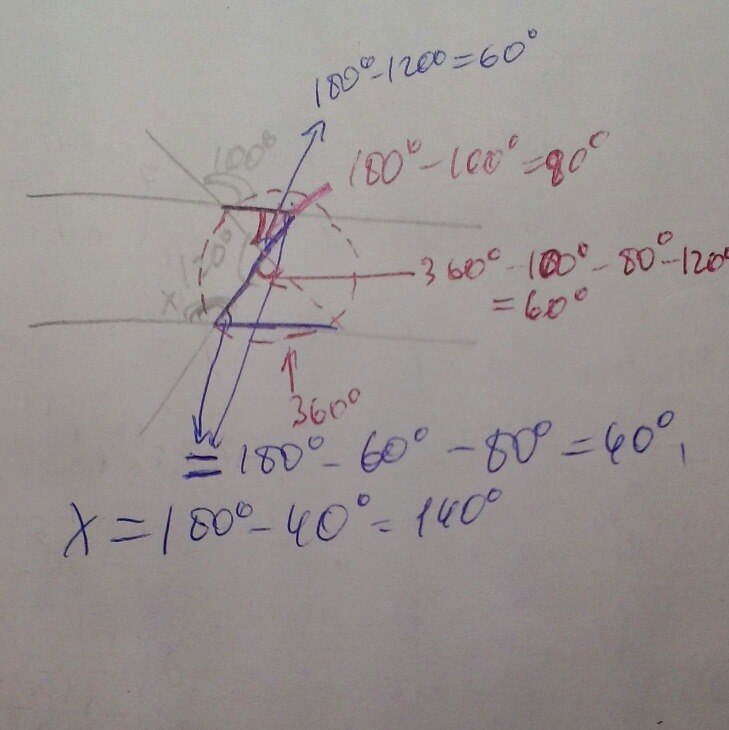 180°-120°=60°
100°
180°-100°=80°
120°
360°-100°-80°-120°
=60°
x
360°
=180°-60°-80°=40°,
x=180°-40°=140°